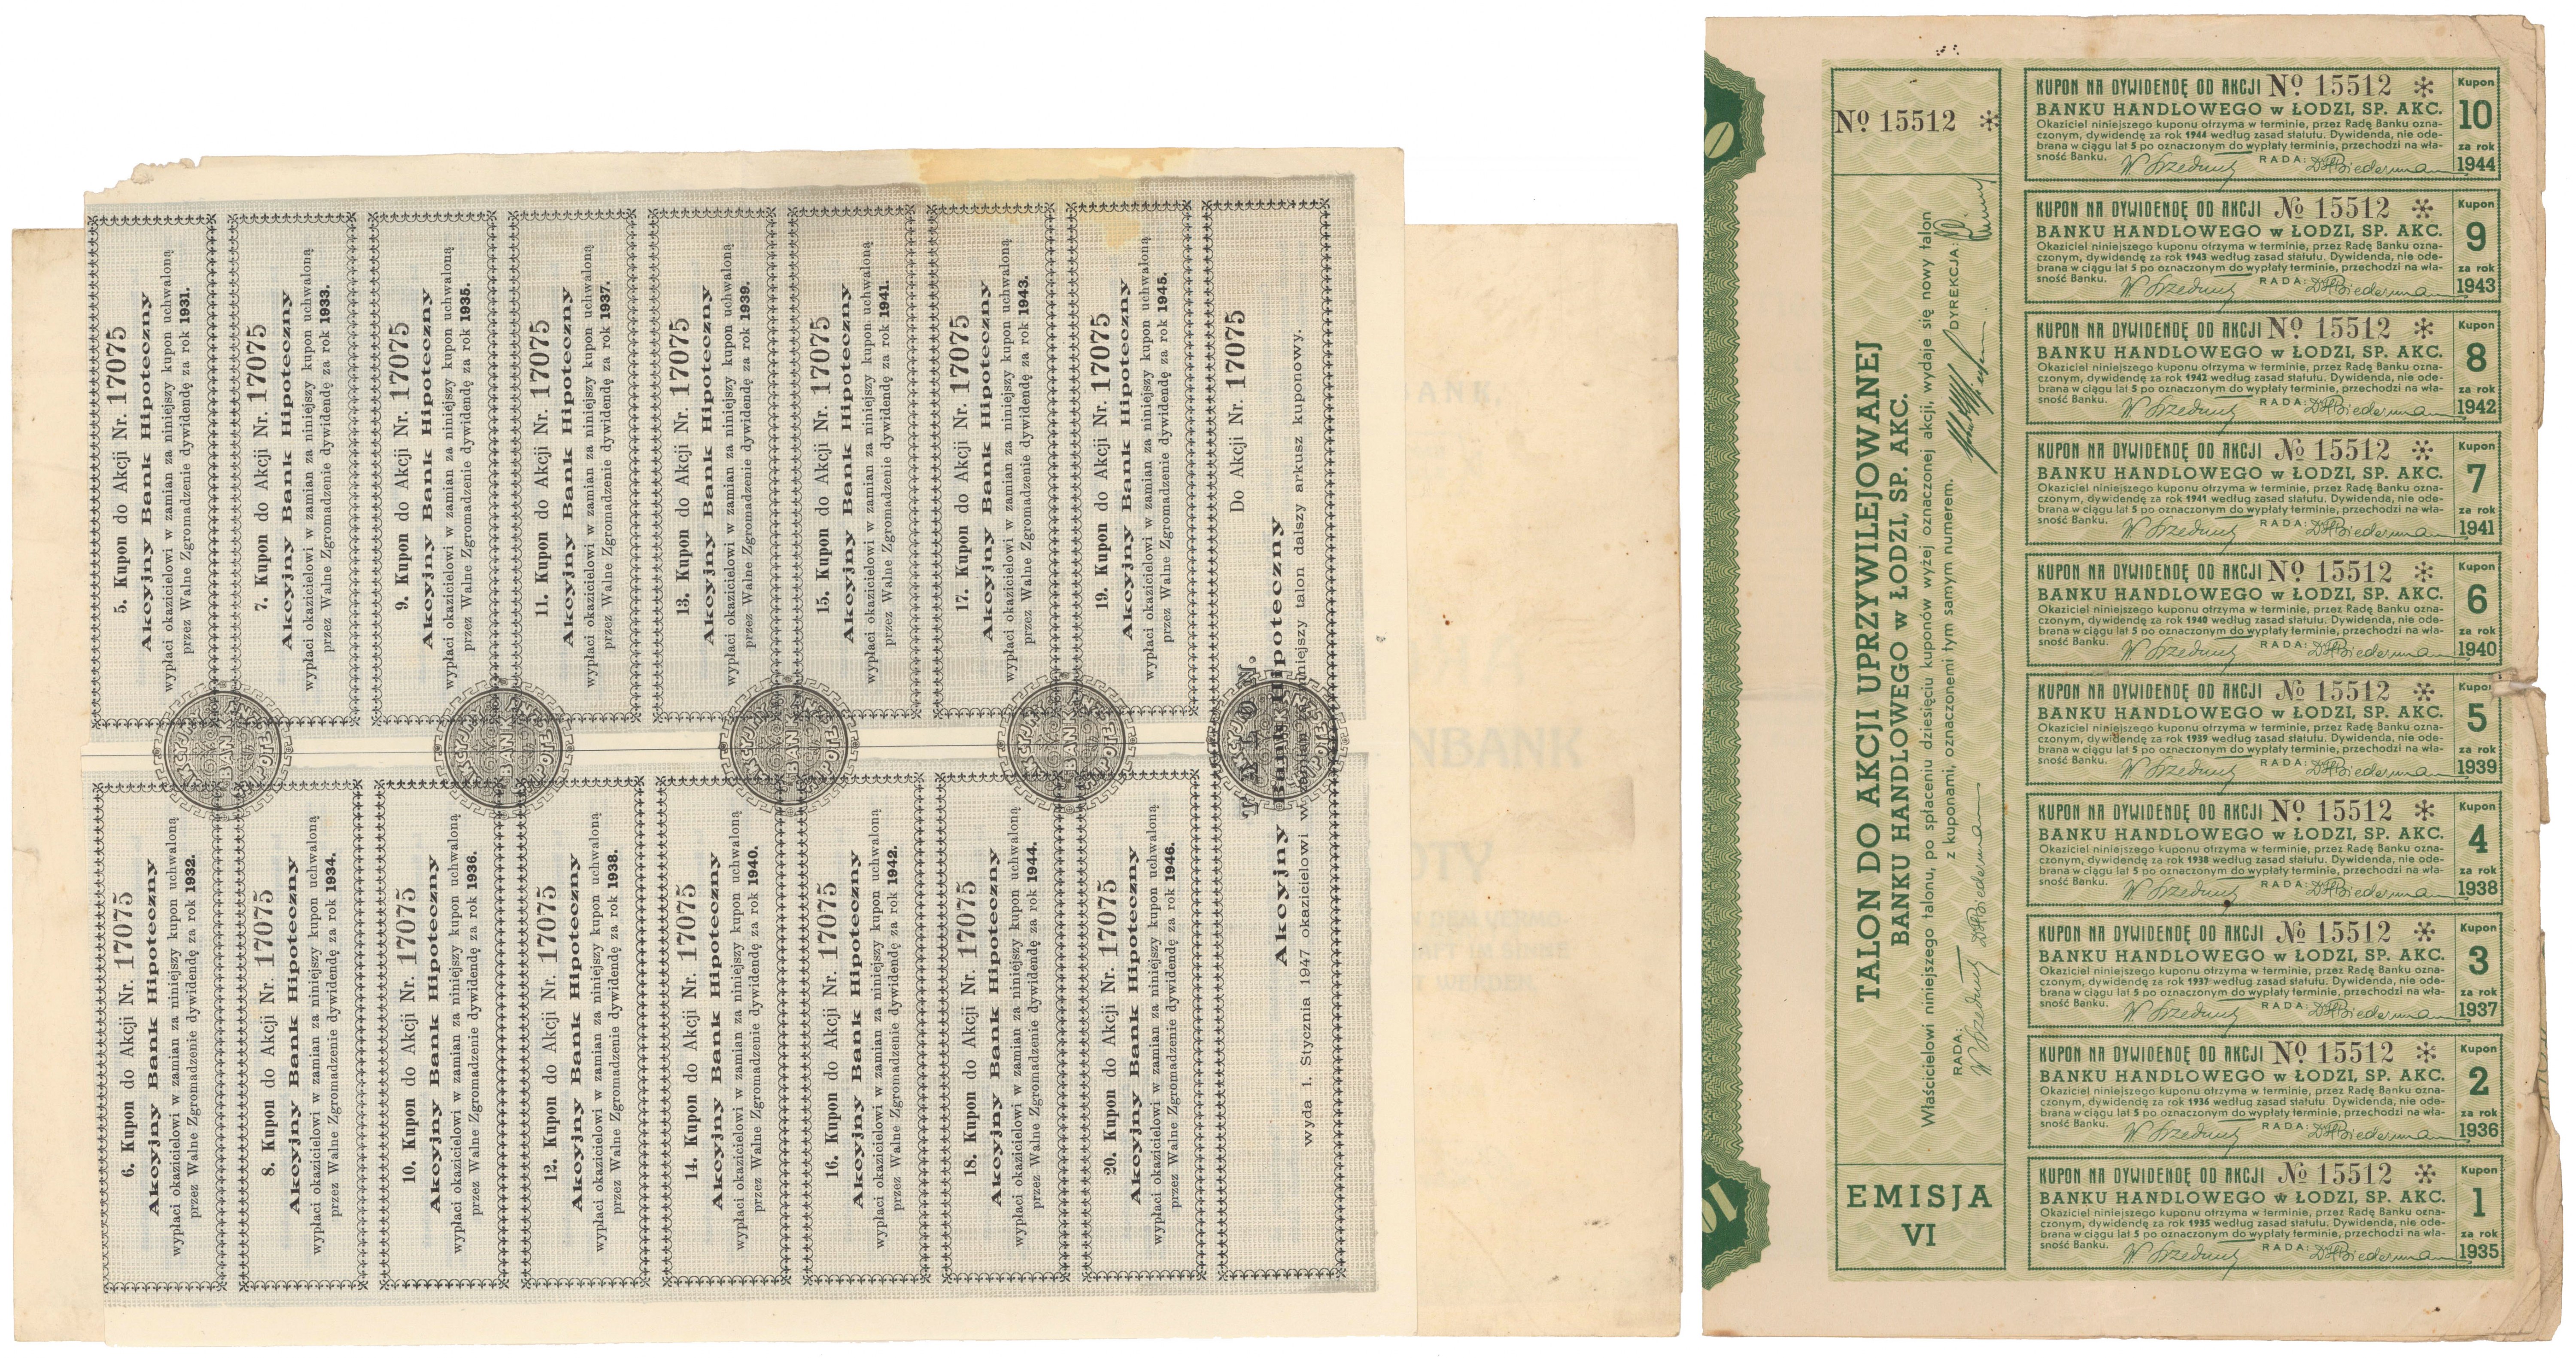 5. Kupon do Akcji Nr. 17075
Akcyjny Bank Hipoteczny
wypłaci okazicielowi w zamian za niniejszy kupon uchwaloną
przez Walne Zgromadzenie dywidendę za rok 1931.
7. Kupon do Akcji Nr. 17075
Akcyjny Bank Hipoteczny
wypłaci okazicielowi w zamian za niniejszy kupon uchwaloną
przez Walne Zgromadzenie dywidendę za rok 1933.
9. Kupon do Akcji Nr. 17075
Akcyjny Bank Hipoteczny
wypłaci okazicielowi w zamian za niniejszy kupon uchwaloną
przez Walne Zgromadzenie dywidendę za rok 1935.
11. Kupon do Akcji Nr. 17075
Akcyjny Bank Hipoteczny
wypłaci okazicielowi w zamian za niniejszy kupon uchwaloną
przez Walne Zgromadzenie dywidendę za rok 1937.
13. Kupon do Akcji Nr. 17075
Akcyjny Bank Hipoteczny
wypłaci okazicielowi w zamian za niniejszy kupon uchwaloną
przez Walne Zgromadzenie dywidendę za rok 1939.
15. Kupon do Akcji Nr. 17075
Akcyjny Bank Hipoteczny
wypłaci okazicielowi w zamian za niniejszy kupon uchwaloną
przez Walne Zgromadzenie dywidendę za rok 1941.
17. Kupon do Akcji Nr. 17075
Akcyjny Bank Hipoteczny
wypłaci okazicielowi w zamian za niniejszy kupon uchwaloną
przez Walne Zgromadzenie dywidendę za rok 1943.
19. Kupon do Akcji Nr. 17075
Akcyjny Bank Hipoteczny
wypłaci okazicielowi w zamian za niniejszy kupon uchwaloną
przez Walne Zgromadzenie dywidendę za rok 1945.
6. Kupon do Akcji Nr. 17075
Akcyjny Bank Hipoteczny
wypłaci okazicielowi w zamian za niniejszy kupon uchwaloną
przez Walne Zgromadzenie dywidendę za rok 1932.
8. Kupon do Akcji Nr. 17075
Akcyjny Bank Hipoteczny
wypłaci okazicielowi w zamian za niniejszy kupon uchwaloną
przez Walne Zgromadzenie dywidendę za rok 1934.
10. Kupon do Akcji Nr. 17075
Akcyjny Bank Hipoteczny
wypłaci okazicielowi w zamian za niniejszy kupon uchwaloną
przez Walne Zgromadzenie dywidendę za rok 1936.
12. Kupon do Akcji Nr. 17075
Akcyjny Bank Hipoteczny
wypłaci okazicielowi w zamian za niniejszy kupon uchwaloną
przez Walne Zgromadzenie dywidendę za rok 1938.
14. Kupon do Akcji Nr. 17075
Akcyjny Bank Hipoteczny
wypłaci okazicielowi w zamian za niniejszy kupon uchwaloną
przez Walne Zgromadzenie dywidendę za rok 1940.
16. Kupon do Akcji Nr. 17075
Akcyjny Bank Hipoteczny
wypłaci okazicielowi w zamian za niniejszy kupon uchwaloną
przez Walne Zgromadzenie dywidendę za rok 1942.
18. Kupon do Akcji Nr. 17075
Akcyjny Bank Hipoteczny
wypłaci okazicielowi w zamian za niniejszy kupon uchwaloną
przez Walne Zgromadzenie dywidendę za rok 1944.
20. Kupon do Akcji Nr. 17075
Akcyjny Bank Hipoteczny
wypłaci okazicielowi w zamian za niniejszy kupon uchwaloną
przez Walne Zgromadzenie dywidendę za rok 1946.
Do Akcji Nr. 17075
TALON.
Akcyjny Bank Hipoteczny
wyda 1. Stycznia 1947 okazicielowi w zamian za niniejszy talon dalszy arkusz kuponowy.
Nº 15512 *
TALON DO AKCJI UPRZYWILEJOWANEJ
BANKU HANDLOWEGO w ŁODZI, SP. AKC.
Właścicielowi niniejszego talonu, po spłaceniu dziesięciu kuponów wyżej oznaczonej akcji, wydaje się nowy talon
z kuponami, oznaczonemi tym samym numerem.
RADA:
DYREKCJA:
EMISJA
VI
KUPON NA DYWIDENDĘ OD AKCJI Nº 15512 *
BANKU HANDLOWEGO w ŁODZI, SP. AKC.
Okaziciel niniejszego kuponu otrzyma w terminie, przez Radę Banku ozna-
czonym, dywidendę za rok 1944 według zasad statutu. Dywidenda, nie ode-
brana w ciągu lat 5 po oznaczonym do wypłaty terminie, przechodzi na wła-
sność Banku. RADA:
Kupon
10
za rok
1944
KUPON NA DYWIDENDĘ OD AKCJI Nº 15512 *
BANKU HANDLOWEGO w ŁODZI, SP. AKC.
Okaziciel niniejszego kuponu otrzyma w terminie, przez Radę Banku ozna-
czonym, dywidendę za rok 1943 według zasad statutu. Dywidenda, nie ode-
brana w ciągu lat 5 po oznaczonym do wypłaty terminie, przechodzi na wła-
sność Banku. RADA:
Kupon
9
za rok
1943
KUPON NA DYWIDENDĘ OD AKCJI Nº 15512 *
BANKU HANDLOWEGO w ŁODZI, SP. AKC.
Okaziciel niniejszego kuponu otrzyma w terminie, przez Radę Banku ozna-
czonym, dywidendę za rok 1942 według zasad statutu. Dywidenda, nie ode-
brana w ciągu lat 5 po oznaczonym do wypłaty terminie, przechodzi na wła-
sność Banku. RADA:
Kupon
8
za rok
1942
KUPON NA DYWIDENDĘ OD AKCJI Nº 15512 *
BANKU HANDLOWEGO w ŁODZI, SP. AKC.
Okaziciel niniejszego kuponu otrzyma w terminie, przez Radę Banku ozna-
czonym, dywidendę za rok 1941 według zasad statutu. Dywidenda, nie ode-
brana w ciągu lat 5 po oznaczonym do wypłaty terminie, przechodzi na wła-
sność Banku. RADA:
Kupon
7
za rok
1941
KUPON NA DYWIDENDĘ OD AKCJI Nº 15512 *
BANKU HANDLOWEGO w ŁODZI, SP. AKC.
Okaziciel niniejszego kuponu otrzyma w terminie, przez Radę Banku ozna-
czonym, dywidendę za rok 1940 według zasad statutu. Dywidenda, nie ode-
brana w ciągu lat 5 po oznaczonym do wypłaty terminie, przechodzi na wła-
sność Banku. RADA:
Kupon
6
za rok
1940
KUPON NA DYWIDENDĘ OD AKCJI Nº 15512 *
BANKU HANDLOWEGO w ŁODZI, SP. AKC.
Okaziciel niniejszego kuponu otrzyma w terminie, przez Radę Banku ozna-
czonym, dywidendę za rok 1939 według zasad statutu. Dywidenda, nie ode-
brana w ciągu lat 5 po oznaczonym do wypłaty terminie, przechodzi na wła-
sność Banku. RADA:
Kupon
5
za rok
1939
KUPON NA DYWIDENDĘ OD AKCJI Nº 15512 *
BANKU HANDLOWEGO w ŁODZI, SP. AKC.
Okaziciel niniejszego kuponu otrzyma w terminie, przez Radę Banku ozna-
czonym, dywidendę za rok 1938 według zasad statutu. Dywidenda, nie ode-
brana w ciągu lat 5 po oznaczonym do wypłaty terminie, przechodzi na wła-
sność Banku. RADA:
Kupon
4
za rok
1938
KUPON NA DYWIDENDĘ OD AKCJI Nº 15512 *
BANKU HANDLOWEGO w ŁODZI, SP. AKC.
Okaziciel niniejszego kuponu otrzyma w terminie, przez Radę Banku ozna-
czonym, dywidendę za rok 1937 według zasad statutu. Dywidenda, nie ode-
brana w ciągu lat 5 po oznaczonym do wypłaty terminie, przechodzi na wła-
sność Banku. RADA:
Kupon
3
za rok
1937
KUPON NA DYWIDENDĘ OD AKCJI Nº 15512 *
BANKU HANDLOWEGO w ŁODZI, SP. AKC.
Okaziciel niniejszego kuponu otrzyma w terminie, przez Radę Banku ozna-
czonym, dywidendę za rok 1936 według zasad statutu. Dywidenda, nie ode-
brana w ciągu lat 5 po oznaczonym do wypłaty terminie, przechodzi na wła-
sność Banku. RADA:
Kupon
2
za rok
1936
KUPON NA DYWIDENDĘ OD AKCJI Nº 15512 *
BANKU HANDLOWEGO w ŁODZI, SP. AKC.
Okaziciel niniejszego kuponu otrzyma w terminie, przez Radę Banku ozna-
czonym, dywidendę za rok 1935 według zasad statutu. Dywidenda, nie ode-
brana w ciągu lat 5 po oznaczonym do wypłaty terminie, przechodzi na wła-
sność Banku. RADA:
Kupon
1
za rok
1935